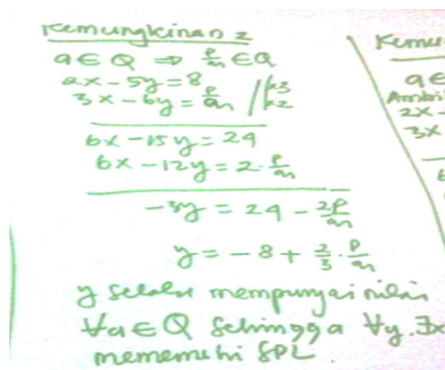 Kemungkinan 2
a ∈ Q ⇒ p/m ∈ Q
2x - 5y = 8
3x - 6y = p/m
x3
x2
6x - 15y = 24
6x - 12y = 2 · p/m
-3y = 24 - 2p/m
y = -8 + 2/3 · p/m
y selalu mempunyai nilai
∀a ∈ Q sehingga ∀y. ∃x
mememuhi SPL.
Kemu
a ∈
Ambil
2x -
3x
6